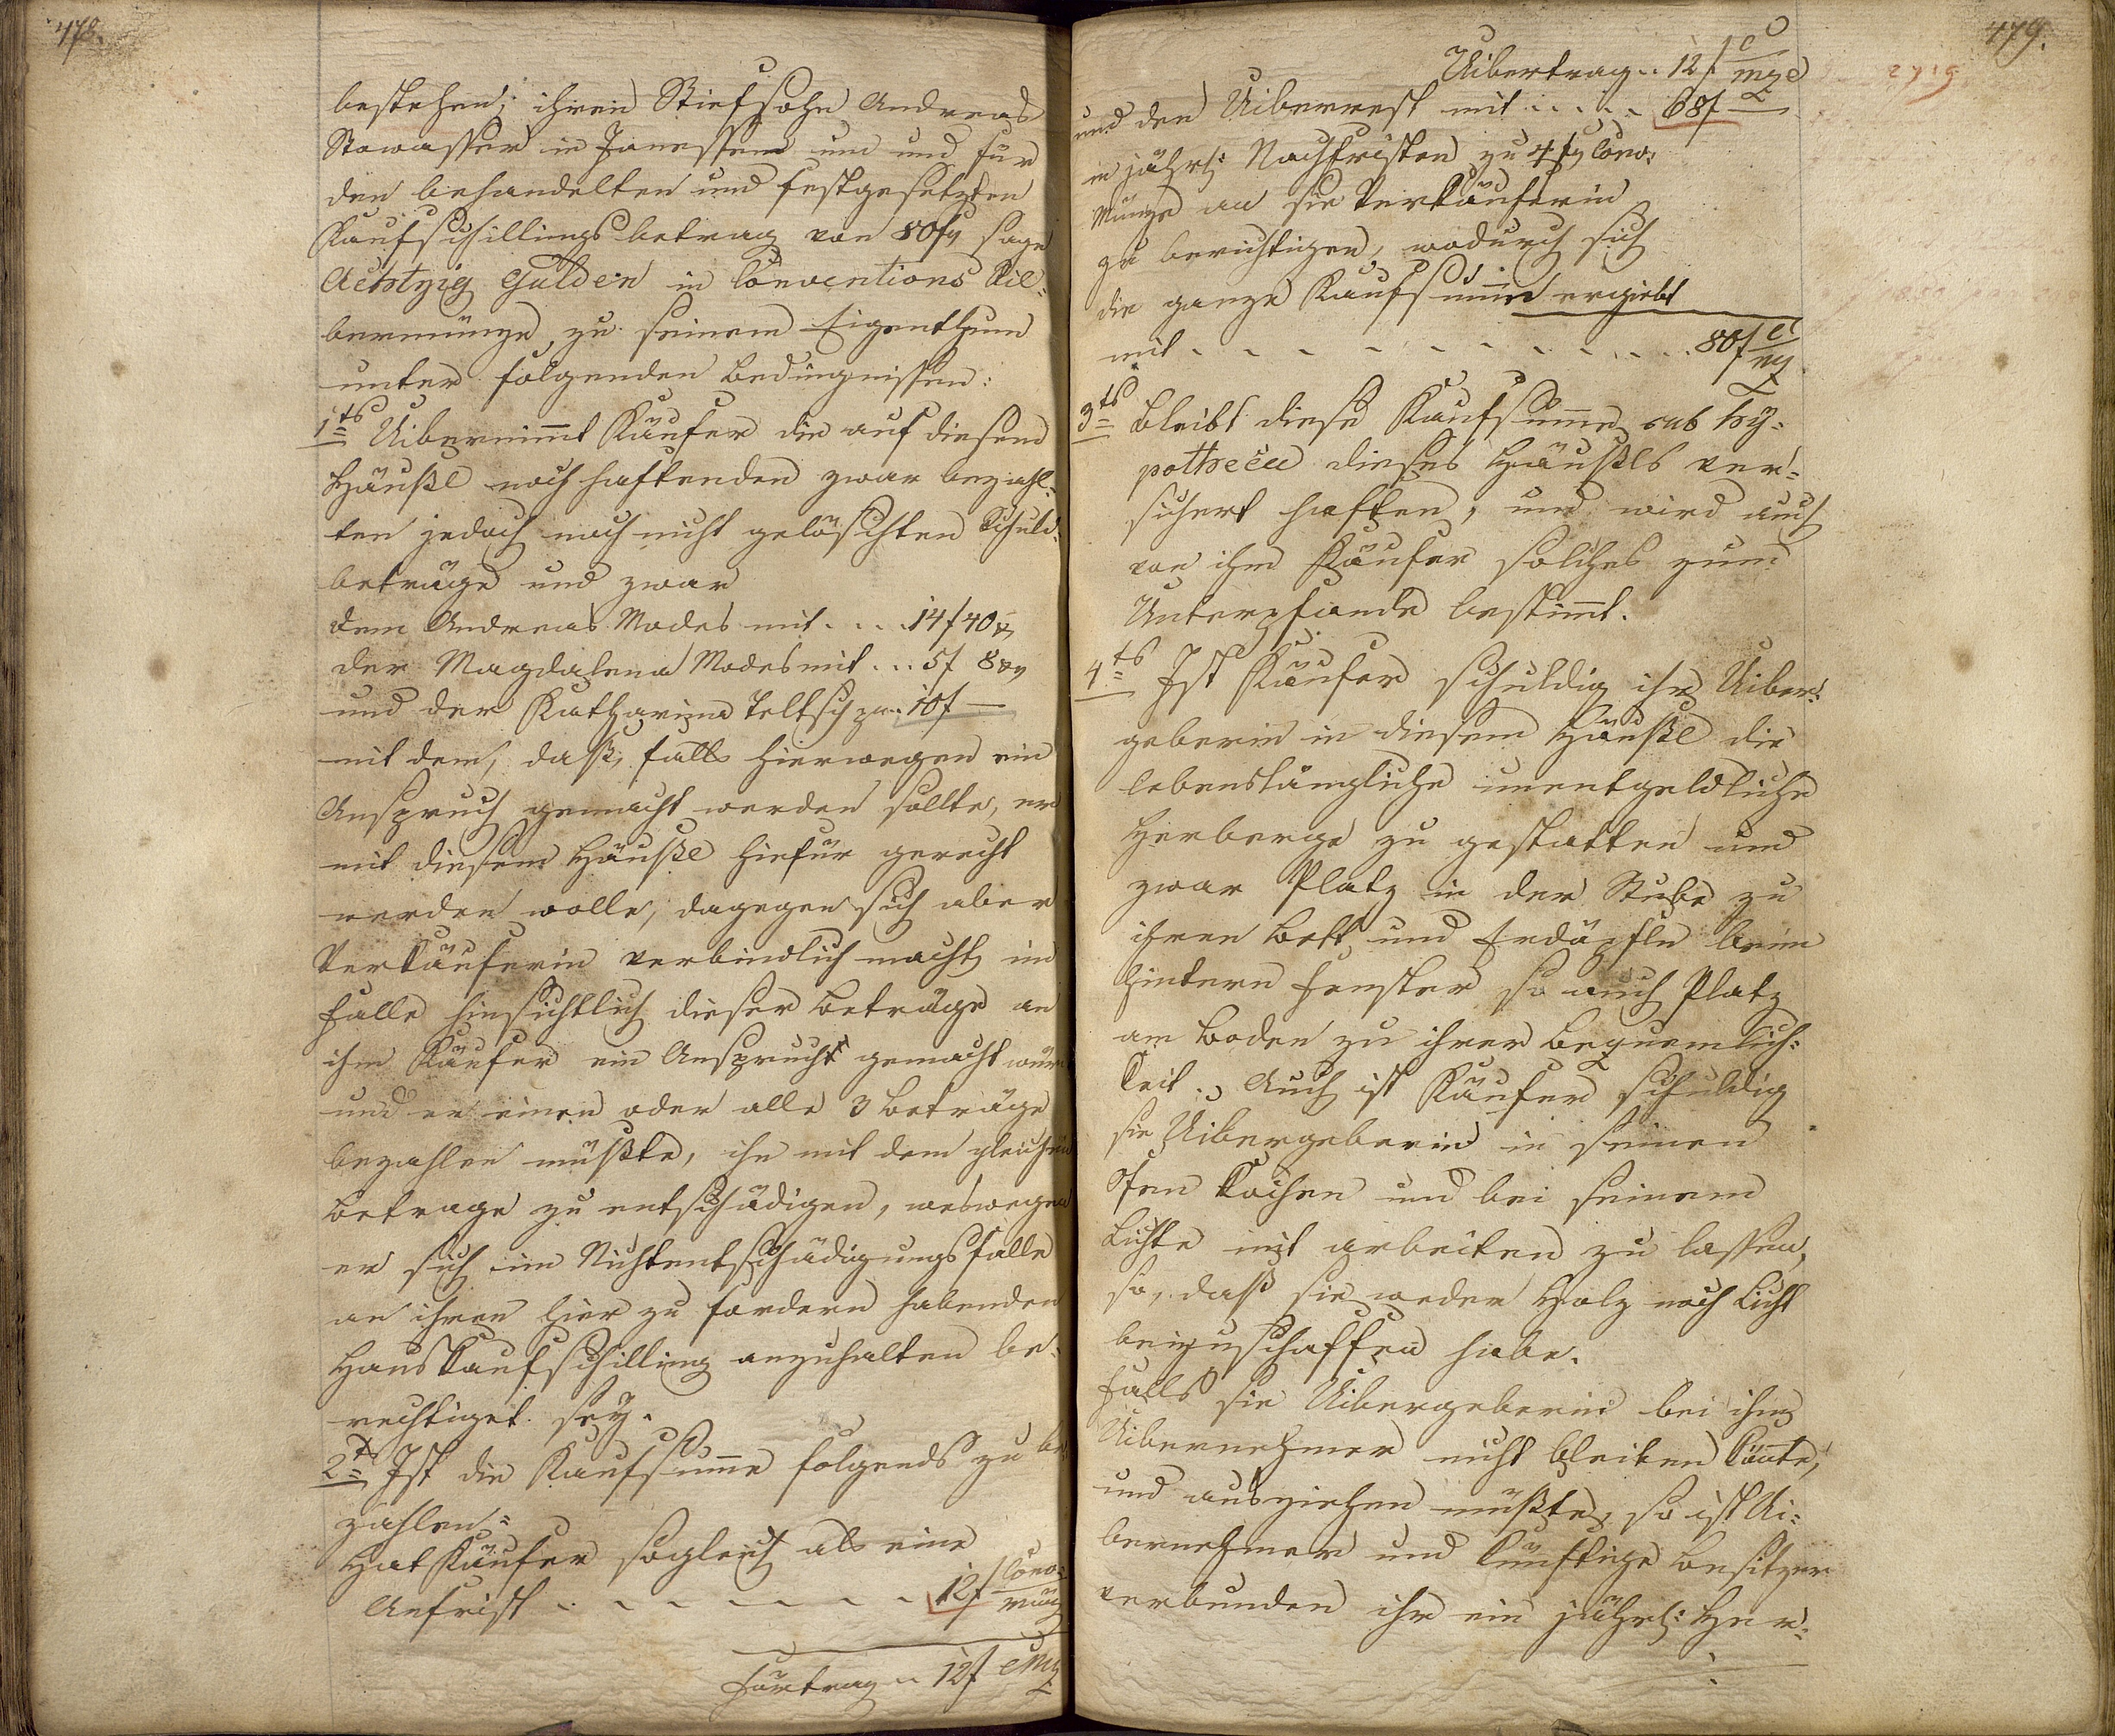 478.
bestehen; ihren Stiefsohn Andreas
Stowasser in Janessen um und für
den behandelten und festgesetzten
Kaufschillingsbetrag von 80 f sage
Achtzig Gulden in Conventions Sil-
bermünze, zu seinem Eigenthum
unter folgenden Bedingnissen:
1tens Uibernimmt Käufer die auf diesem
Häußl noch haftenden zwar bezahl-
ten jedoch noch nicht gelöschten Schuld-
beträge und zwar
dem Andreas Modes mit . . . 14 f 40 x
der Magdalena Modes mit . . . 5 f 8 x
und der Katharina Teltsch pr. 10 f —
mit dem, daß, falls hierwegen ein
Anspruch gemacht werden sollte, er
mit diesem Häußl hiefür gerecht
werden wolle, dagegen sich aber
Verkäuferin verbindlich macht, im
Falle hinsichtlich dieser Beträge an
ihn Käufer ein Anspruch gemacht würde
und er einen oder alle 3 Beträge
bezahlen müßte, ihn mit dem gleichen
Betrage zu entschädigen, weswegen
er sich im Nichtentschädigungsfalle
an ihren hier zu fordern habenden
Hauskaufschilling anzuhalten be-
rechtiget sey.
2tens Ist die Kaufsumme folgends zu be-
zahlen:
Hat Käufer sogleich als eine
Anfrist . . . . . . . 12 f Conv. Münz
Fürtrag .. 12 f CMz
479.
Uibertrag .. 12 f C Mze
und den Uiberrest mit . . . . . 68 f —
in jährl: Nachfristen zu 4 f Conv:
Münze an sie Verkäuferin
zu berichtigen, wodurch sich
die ganze Kaufsumme ergiebt
mit . . . . . . . . . . . 80 f C Mz
3tens Bleibt diese Kaufsumme sub Hy-
potheca dieses Häußls ver-
sichert haften, und wird auch
von ihm Käufer solches zum
Unterpfande bestimmt.
4tens Ist Käufer schuldig ihr Uiber-
geberin in diesem Häußl die
lebenslängliche unentgeldliche
Herberge zu gestatten und
zwar Platz in der Stube zu
ihren Bett und Erdäpfln beim
hintern Fenster so auch Platz
am Boden zu ihrer Bequemlich-
keit. Auch ist Käufer schuldig
sie Uibergeberin in seinen
Ofen kochen und bei seinem
Lichte mit arbeiten zu lassen,
so, daß sie weder Holz noch Licht
beizuschaffen habe.
Falls sie Uibergeberin bei ihm
Uibernehmer nicht bleiben könnte,
und ausziehen müßte, so ist Ui-
bernehmer und künftige Besitzer
verbunden ihr ein jährl: Her-